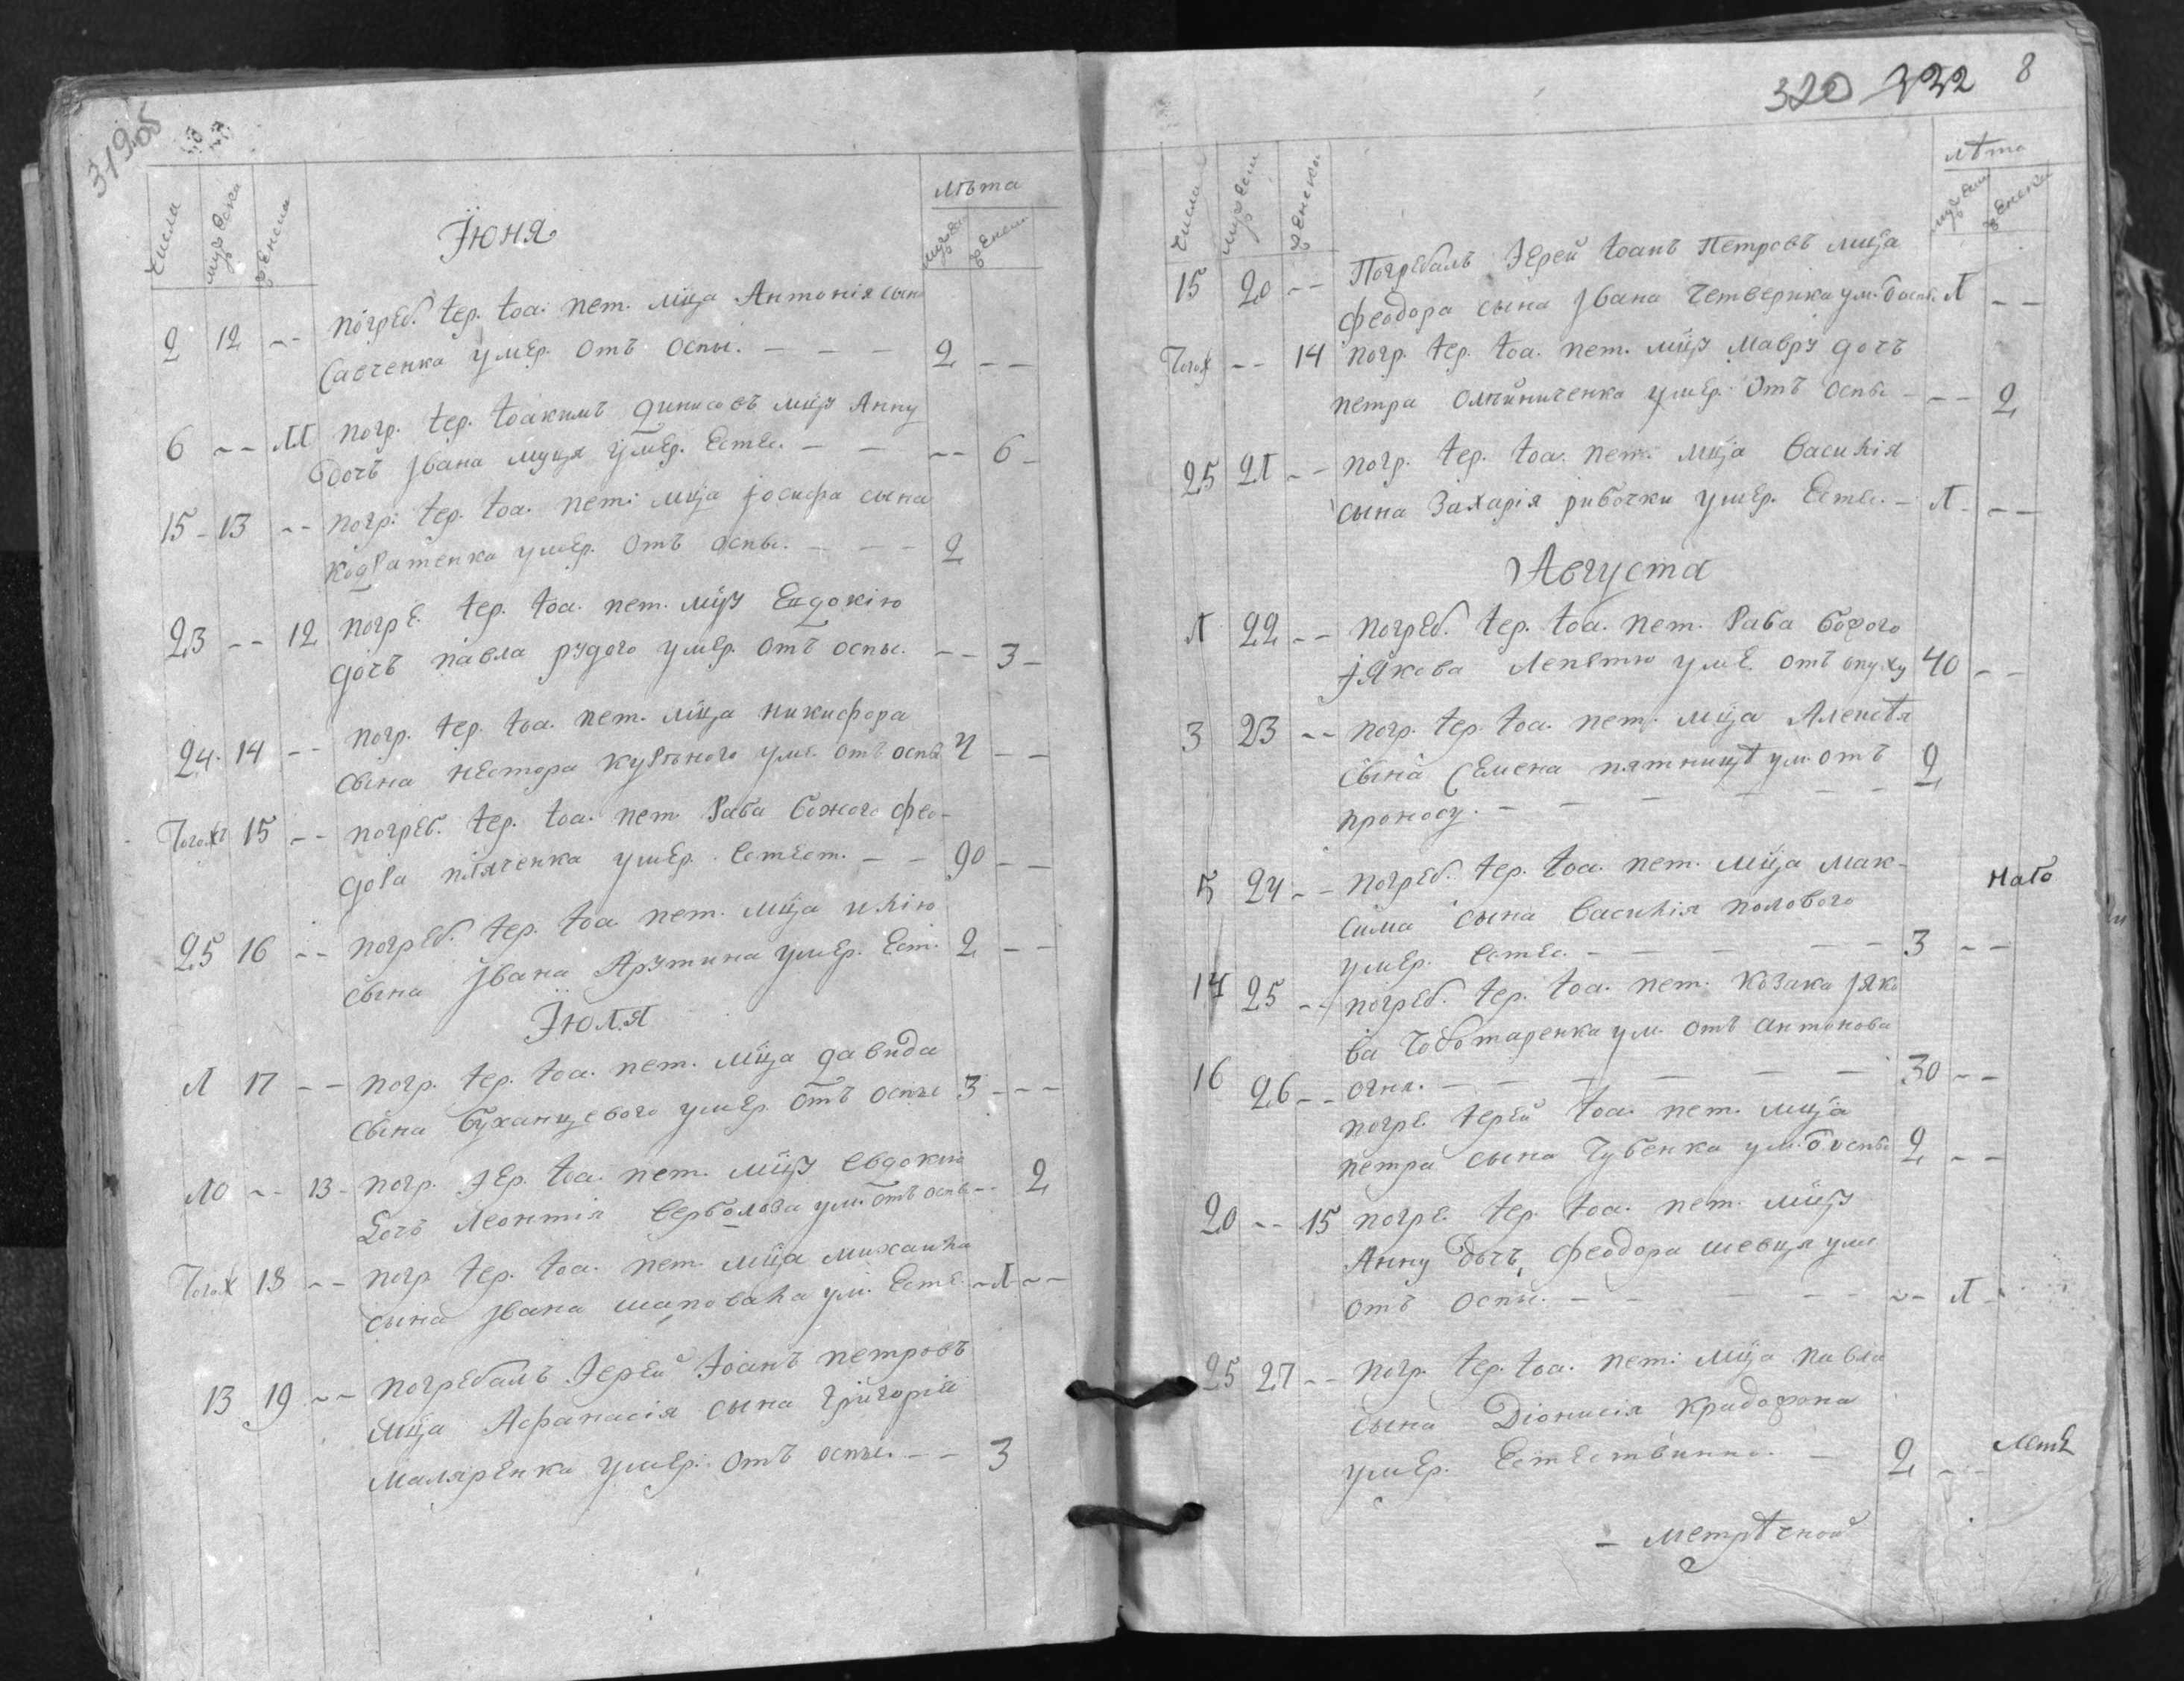 319об
числа мужеска женска
Іюня
лѣта
мужес женски
2 12 -- погреб. іер. іоа. пет. мца Антонія сына
Савченка умер. отъ оспы. - - - 2 --
6 -- 11 погр. іер. іоакимъ динисовъ мцу Анну
дочъ Ивана муця умер. Есте. - - -- 6 -
15 - 13 -- погр. іер. іоа. пет. мца іосифа сына
кодратенка умер. отъ оспы. - - - 2
23 -- 12 погре. іер. іоа. пет. мцу Евдокію
дочъ павла рудого умер. отъ оспы. -- 3 -
24. 14 -- погр. іер. іоа. пет. мца никифора
сына нестора уме. отъ оспы 4 --
Тогож 15 -- погреб. іер. іоа. пет. Раба божого фео-
дора умер. Естест. - - 90 --
25 16 -- погреб. іер. іоа пет. мца илію
сына Ивана умер. Ест. 2 --
Іюля
1 17 -- погр. іер. іоа. пет. мца давида
сына буханцевого умер. отъ оспы 3 ---
10 -- 13 - погр. іер. іоа. пет. мцу евдокию
дочъ леонтія ум. отъ оспы -- 2
Тогож 18 -- погр іер. іоа. пет. мца михаила
сына Ивана шаповала ум. Есте - 1 --
13 19 -- погребалъ Іерей Іоанъ петровъ
мца Афанасія сына григорія
маляренка умер. отъ оспы. -- 3
320 332 8
числа мужески женски
лѣта
мужески женски
15 20 -- Погребалъ Іерей іоанъ Петровъ мца
феодора сына Ивана Четверика ум. оспы. 1 --
Тогож -- 14 погр. іер. іоа. пет. мцу мавру дочъ
петра умер. отъ оспы - -- 2
25 21 -- погр. іер. іоа. пет. мца василія
сына Захарія рибочки умер. Есте. - 1 - --
Августа
1 22 -- погреб. іер. іоа. пет. Раба божого
Якова Лепетю уме. отъ опуху 40 --
3 23 -- погр. іер. іоа. пет. мца Алексѣя
сына Семена пятницѣ ум. отъ 2
проносу. - - - - - -
5 24 -- погреб. іер. іоа. пет. мца мак-
сима сына василія полового
умер. Есте. - - - - 3 --
14 25 -- погреб. іер. іоа. пет. козака Яко
ва Чоботаренка ум. отъ антонова
огня. - - - - - - 30 --
16 26 -- погре. іерей іоа. пет. мца
петра сына Чубенка ум. оспы 2 --
20 -- 15 погре. іер. іоа. пет. мцу
Анну дочъ феодора шевця уме
отъ оспы. - - - - -- 1 -
25 27 -- погр. іер. іоа. пет. мца павла
сына Діонисія
умер. Естественно. - 2 --
- метрѣчной